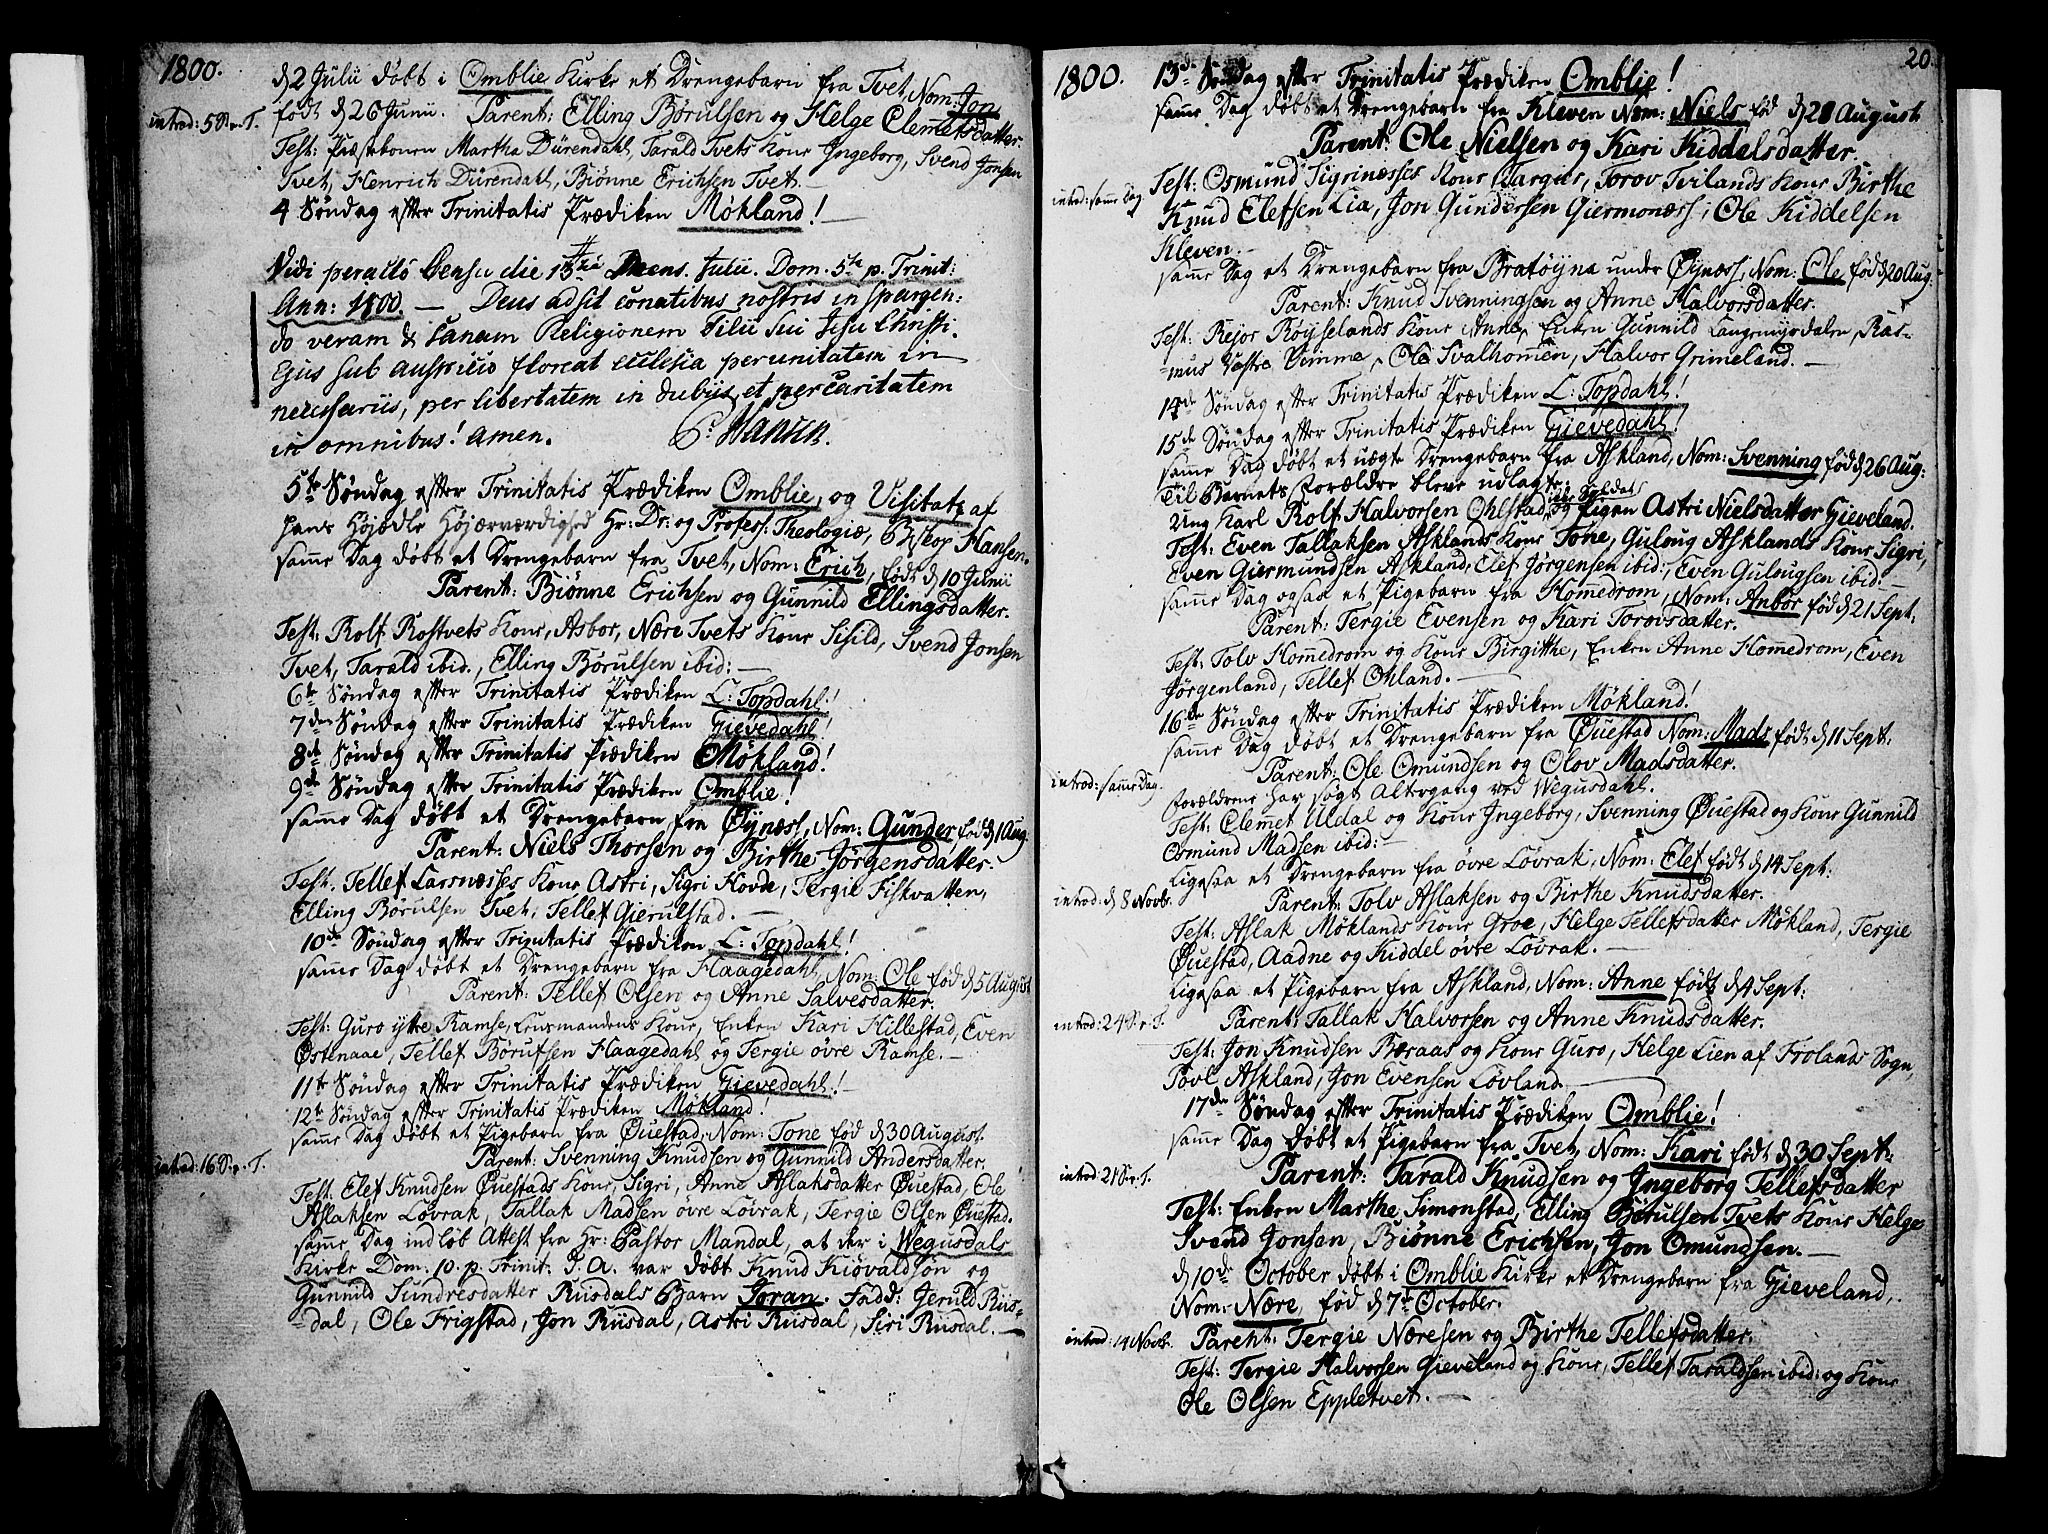 1800.
d 2 Julii døbt i Omblie Kirke et Drengebarn fra Tvet, Nom: Jon
født d 26 Junii. Parent: Elling Børulsen og Helge Clemetsdatter.
introd: 5 S. p. T.
Test: Præstekonen Martha Dürendahl, Tarald Tvets Kone Ingeborg, Svend Jonsen
Tvet, Henrich Dürendahl, Biønne Erichsen Tvet.
4 Søndag efter Trinitatis Prædiken Møkland!
Vidi peracto Censu die 13tia Mens. Julii. Dom. 5te p. Trinit:
Ann: 1800. — Deus adsit conatibus nostris in spargen:
do veram & sanam Religionem Filii Sui Jesu Christi.
Ejus sub auspicio floreat ecclesia per unitatem in
necessariis, per libertatem in dubiis, et per caritatem
in omnibus! Amen. P. Hansen.
5te Søndag efter Trinitatis Prædiken Omblie, og Visitatz af
hans Højædle Højærværdighed Hr: Dr: og Profess: Theologiæ, Biskop Hansen.
samme Dag døbt et Drengebarn fra Tvet, Nom: Erich, født d 10 Julii
Parent: Biønne Erichsen og Gunnild Ellingsdatter.
Test: Rolf Rostvets Kone, Asbor, Nære Tvets Kone Sisild, Svend Jonsen
Tvet, Tarald ibid., Elling Børulsen ibid:
6te Søndag efter Trinitatis Prædiken L: Topdahl!
7de Søndag efter Trinitatis Prædiken Gievedahl!
8de Søndag efter Trinitatis Prædiken Møkland!
9de Søndag efter Trinitatis Prædiken Omblie!
samme Dag døbt et Drengebarn fra Øynæss, Nom: Gunder, fød d 1 Aug
Parent: Niels Thorsen og Birthe Jørgensdatter.
Test: Tellef Larsnæsses Kone Astri, Sigri Hovde, Tergie Fiskvatten,
Elling Børulsen Tvet, Tellef Gierulstad.
10de Søndag efter Trinitatis Prædiken L: Topdahl!
samme Dag døbt et Drengebarn fra Haagedahl, Nom: Ole fød d 5 August
Parent: Tellef Olsen og Anne Salvesdatter.
Test: Guro ytre Ramse, Lensmandens Kone, Enken Kari Hillestad, Even
Østenaae, Tellef Børufsen Haagedahl og Tergie øvre Ramse.
11te Søndag efter Trinitatis Prædiken Gievedahl!
12te Søndag efter Trinitatis Prædiken Møkland!
samme Dag døbt et Pigebarn fra Øuestad, Nom: Tone fød d 30 August
Parent: Svenning Knudsen og Gunnild Andersdatter.
introd: 16 S. p. T.
Test: Elef Knudsen Øuestads Kone, Sigri, Anne Aslaksdatter Øuestad, Ole
Aslaksen Løvrak, Tallak Madsen øvre Løvrak, Tergie Olsen Øuestad.
samme Dag indløb Attest fra Hr: Pastor Mandal, at der i Wegusdals
Kirke Dom. 10. p. Trinit. T. A. var døbt Knud Kiøvaldsøn og
Gunnild Sundresdatter Riisdals Barn Joran. Fadd: Jeruld Riis-
dal, Ole Frigstad, Jon Riisdal, Astri Riisdal, Siri Riisdal.
20
1800.
13de Søndag efter Trinitatis Prædiken Omblie!
samme Dag døbt et Drengebarn fra Kleven Nom: Niels fød d 28 August
Parent: Ole Nielsen og Kari Kiddelsdatter.
introd: samme Dag.
Test: Osmund Sigrinæsses Kone Targier, Torov Tvilands Kone Birthe
Knud Elefsen Lia, Jon Gundersen Giermonæss, Ole Kiddelsen
Kleven.
samme Dag et Drengebarn fra Bratøyna under Øynæss, Nom: Ole fød d 20 Aug.
Parent: Knud Svenningsen og Anne Halvorsdatter.
Test: Rejor Røyselands Kone Anne, Enken Gunnild Langemyrdalen, Ras-
mus Vestre Vimme, Ole Svalhomen, Halvor Grimeland.
14de Søndag efter Trinitatis Prædiken L: Topdahl!
15de Søndag efter Trinitatis Prædiken Gievedahl!
samme Dag døbt et uægte Drengebarn fra Askland, Nom: Svenning fød d 26 Aug:
Til Barnets Forældre bleve udlagte
Ung Karl Rolf Halvorsen Ohlstad, ikke Soldat, og Pigen Astri Nielsdatter Gieveland.
Test: Even Tallaksen Asklands Kone Tone, Guloug Asklands Kone Sigri,
Even Giermundsen Askland, Elef Jørgensen ibid:, Even Gulougsen ibid:
samme Dag ogsaa et Pigebarn fra Homedrom, Nom: Anbor fød d 21 Sept:
Parent: Tergie Evensen og Kari Torovsdatter.
Test: Tolv Homedrom og Kone Birgitthe, Enken Anne Homedrom, Even
Jørgenland, Tellef Ohland.
16de Søndag efter Trinitatis Prædiken Møkland!
samme Dag døbt et Drengebarn fra Øuestad Nom: Mads født d 11 Sept:
Parent: Ole Omundsen og Olov Madsdatter.
introd: samme Dag.
Forældrene har søgt Altergang ved Wegusdahl.
Test: Clemet Uldal og Kone Ingeborg, Svenning Øuestad og Kone Gunnild
Osmund Madsen ibid:
Ligesaa et Drengebarn fra øvre Løvrak, Nom: Elef født d 14 Sept:
Parent: Tolv Aslaksen og Birthe Knudsdatter.
introd: d 8 Novb.
Test: Aslak Møklands Kone Groe, Helge Tellefsdatter Møkland, Tergie
Øuestad, Aadne og Kiddel øvre Løvrak.
Ligesaa et Pigebarn fra Askland, Nom: Anne født d 4 Sept:
introd: 24 S. p. T.
Parent: Tallak Halvorsen og Anne Knudsdatter.
Test: Jon Knudsen Bæraas og Kone Guro, Helge Lien af Frolands Sogn,
Povl Askland, Jon Evensen Løvland.
17de Søndag efter Trinitatis Prædiken Omblie!
samme Dag døbt et Pigebarn fra Tvet, Nom: Kari født d 30 Sept:
introd: 21 S. p. T.
Parent: Tarald Knudsen og Ingeborg Tellefsdatter
Test: Enken Marthe Simonstad, Elling Børulsen Tvets Kone Helge
Svend Jonsen, Biønne Erichsen, Jon Omundsen.
d 10de October døbt i Omblie Kirke et Drengebarn fra Gieveland,
Nom: Nære, fød d 7de October.
introd: 14 Novb.
Parent: Tergie Næresen og Birthe Tellefsdatter.
Test: Tergie Halvorsen Gieveland og Kone, Tellef Taraldsen ibid: og Kone
Ole Olsen Eppletvet.